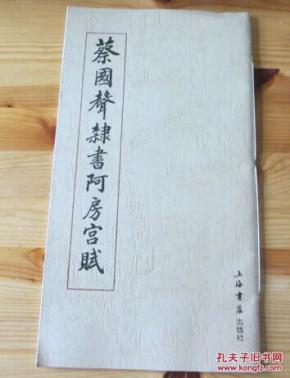 蔡國聲隸書阿房宫賦
上海書店出版社
孔夫子旧书网